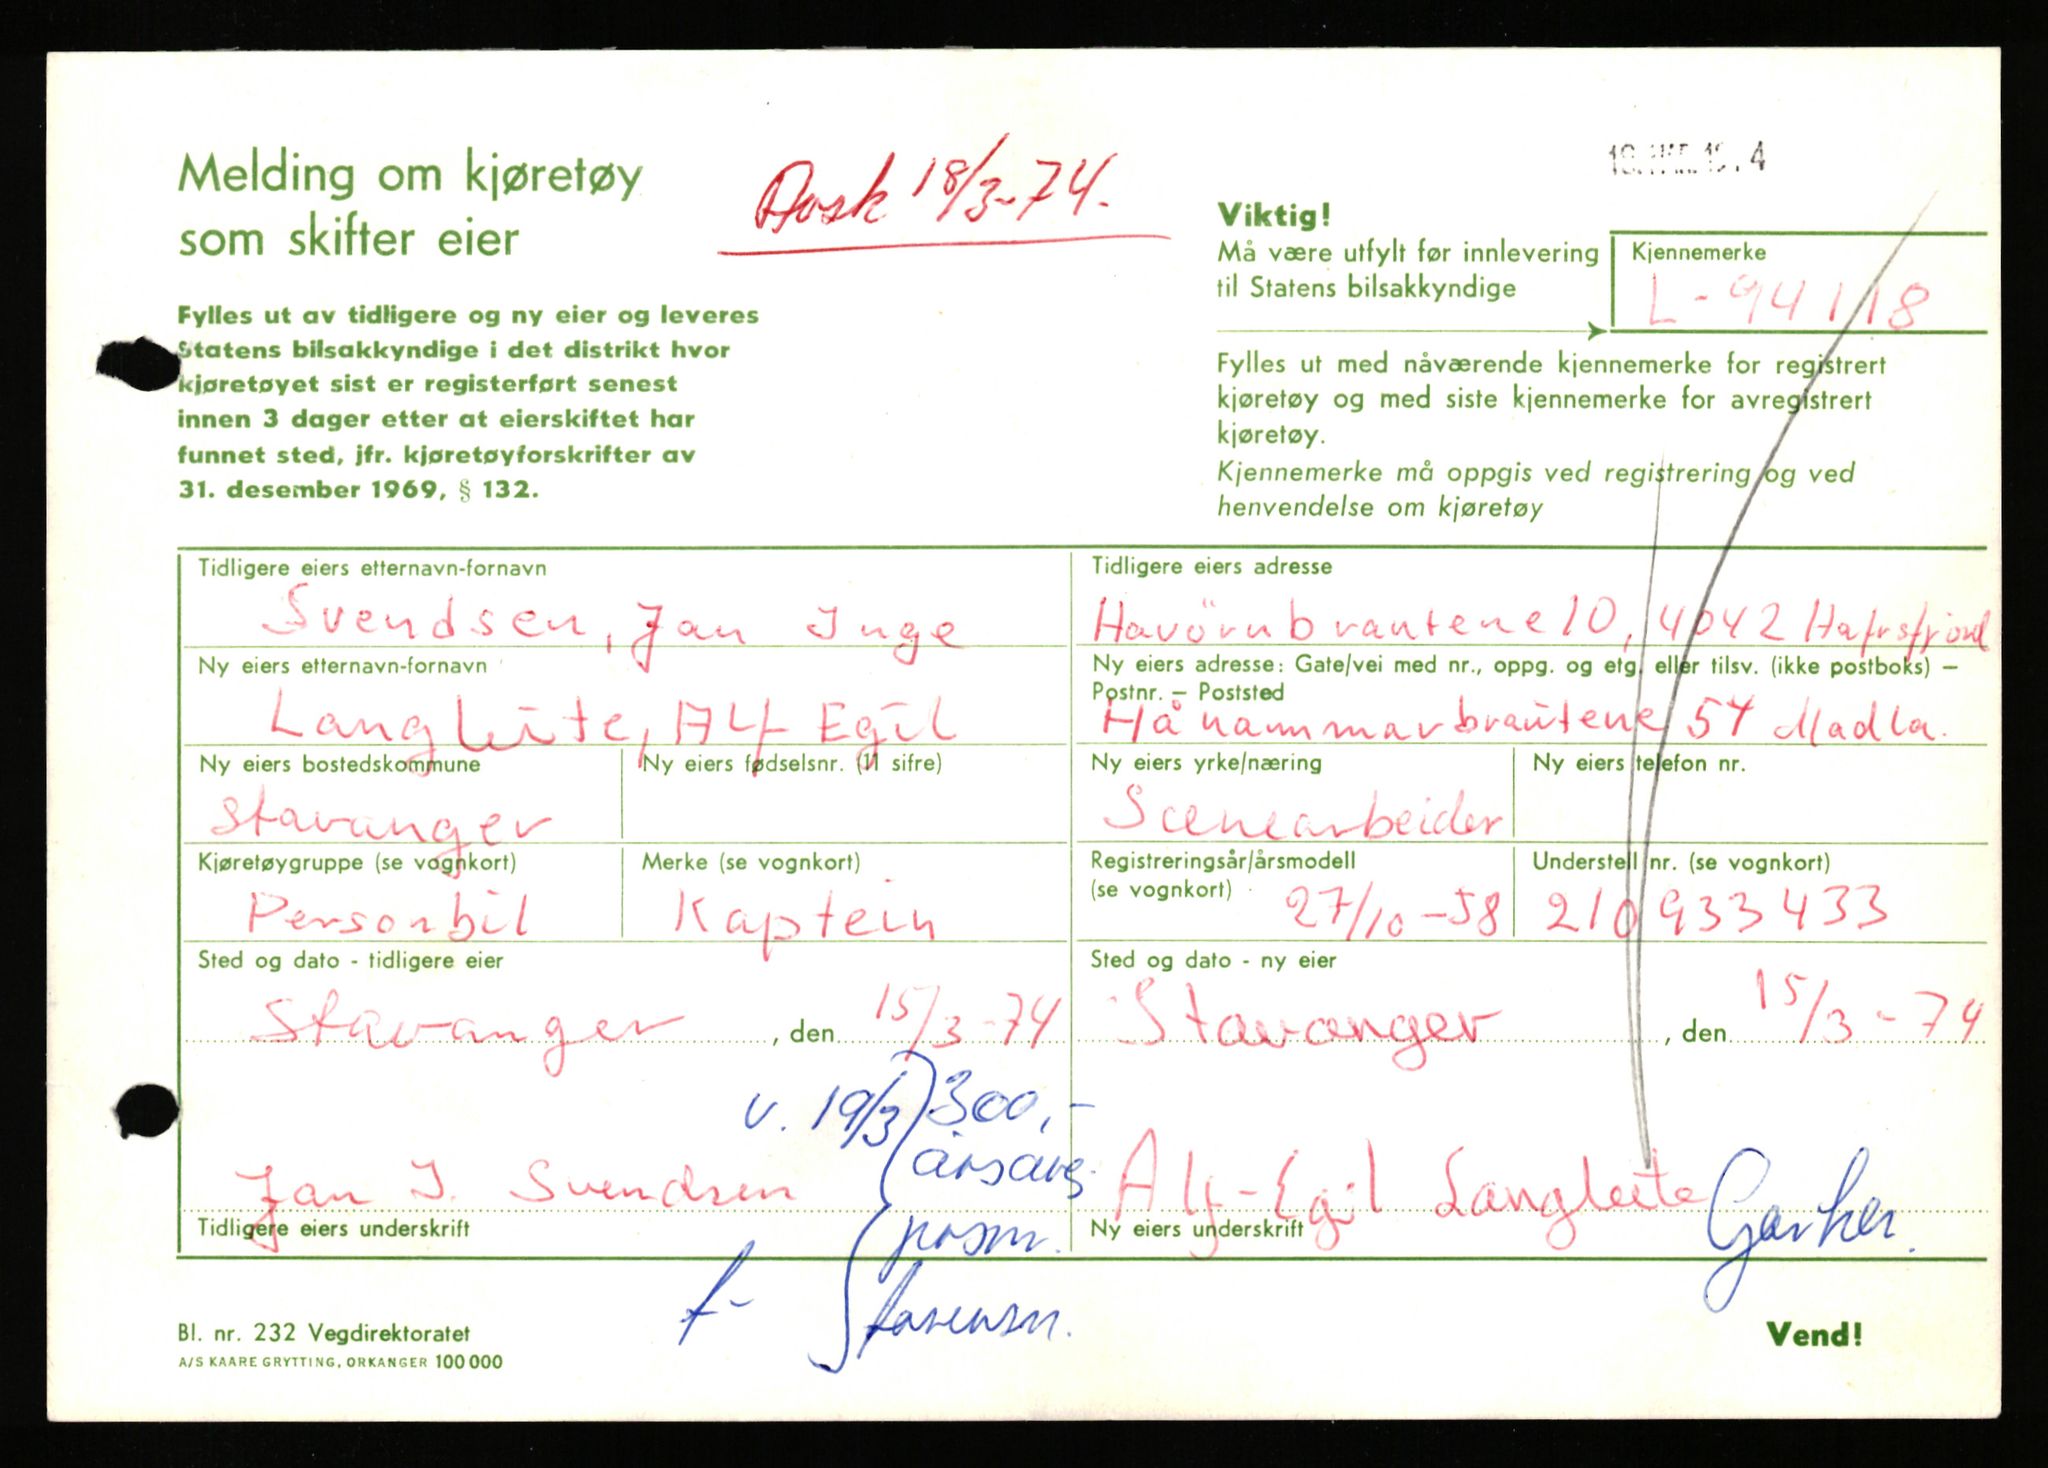 Melding om kjøretøy
som skifter eier
18/3-74.
Fylles ut av tidligere og ny eier og leveres
Statens bilsakkyndige i det distrikt hvor
kjøretøyet sist er registerført senest
innen 3 dager etter at eierskiftet har
funnet sted, jfr. kjøretøyforskrifter av
31. desember 1969, § 132.
Viktig!
Må være utfylt før innlevering
til Statens bilsakkyndige
Kjennemerke
L-94118
Fylles ut med nåværende kjennemerke for registrert
kjøretøy og med siste kjennemerke for avregistrert
kjøretøy.
Kjennemerke må oppgis ved registrering og ved
henvendelse om kjøretøy
Tidligere eiers etternavn-fornavn
Svendsen, Jan Inge
Tidligere eiers adresse
Havörnbrautene 10, 4042 Hafrsfjord
Ny eiers etternavn-fornavn
Langleite, Alf Egil
Ny eiers adresse: Gate/vei med nr., oppg. og etg. eller tilsv. (ikke postboks) –
Postnr. – Poststed
Hånammarbrautene 54 Madla.
Ny eiers bostedskommune
Stavanger
Ny eiers fødselsnr. (11 sifre)
Ny eiers yrke/næring
Scenearbeider
Ny eiers telefon nr.
Kjøretøygruppe (se vognkort)
Personbil
Merke (se vognkort)
Kaptein
Registreringsår/årsmodell
(se vognkort)
27/10-58
Understell nr. (se vognkort)
210933433
Sted og dato - tidligere eier
Stavanger, den 15/3-74
Sted og dato - ny eier
Stavanger, den 15/3-74
v. 19/3 300,-
årsavg.
Jan I. Svendsen
Tidligere eiers underskrift
Alf-Egil Langleite
Ny eiers underskrift
Bl. nr. 232 Vegdirektoratet
A/S KAARE GRYTTING, ORKANGER 100 000
Vend!